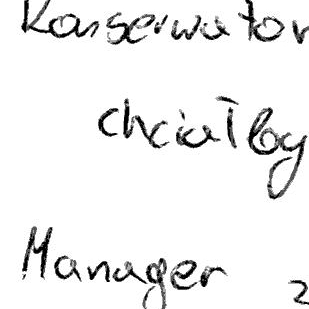 Konserwator
chciałby
Manager 2